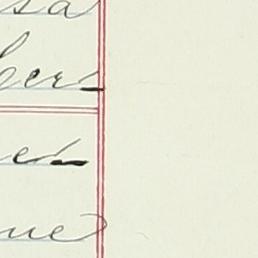 sa
ber
er
ue